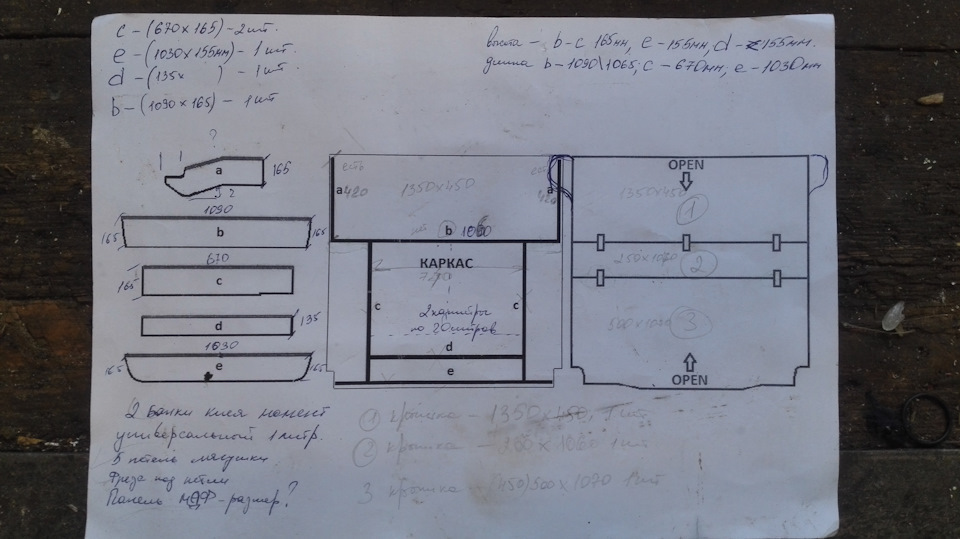 c – (670 x 165) – 2 шт.
e – (1030 x 155мм) – 1 шт.
d – (135x ) – 1 шт.
b – (1090 x 165) – 1 шт
высота – b-c 165мм, e – 155мм, d – 155мм.
длинна b – 1090\1065; c – 670мм, e – 1030мм
?
a
165
2
1090
165
b
165
670
165
c
d
135
1030
165
e
165
есть
a
420
1350x450
есть
a
420
b
КАРКАС
c
c
2 канистры
по 20 литров
d
e
OPEN
1350x450
1
250x1070
2
3
OPEN
2 банки клея момент
универсальный 1 литр.
5 петель
Фреза под петли
Панель МДФ – размер?
1 крышка – 1350x450, 1 шт
2 крышка – 1 шт
3 крышка – (450)500 x 1070 1 шт